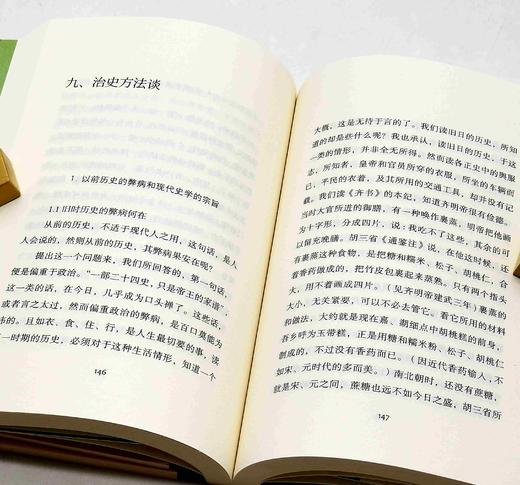 九、治史方法谈
1. 以前历史的弊病和现代史学的宗旨
1.1 旧时历史的弊病何在
从前的历史，不适于现代人之用，这句话，是人
人会说的，然则从前的历史，其弊病果安在呢？
提出这一个问题来，我们所回答的，第一句话，
便是偏重于政治。“一部二十四史，只是帝王的家谱”
这一类的话，在今日，几乎成为口头禅了。这些话，
或者言之太过，然而偏重政治的弊病，是百口莫能为
讳的。且如衣、食、住、行，是人生最切要的事，读
一时期的历史，必须对于这种生活情形，知道一个
146
大概，这是无待于言的了。我们读旧日的历史，所知
道的却是些什么呢？我也承认，读旧日的历史，于这
一类的情形，并非全无所得。然而读各正史中的舆服
志，所知者，皇帝和官员所穿的衣服，所坐的车辆而
已，平民的衣着，及其所用的交通工具，却并没有记
载。我们读《齐书》的本纪，知道齐明帝很有俭德。
当时大官所进的御膳，有一种唤作裹蒸，明帝把他画
为十字形，分成四片，说：我吃不了这些，其余的可
以留充晚膳。胡三省《通鉴注》说，在他这时候，还
有裹蒸这种食物，是用糖和糯米、松子、胡桃仁，合
着香药做成的，把竹皮包裹起来蒸熟。只有两个指头
大，用不着画成四片。（见齐明帝建武三年）裹蒸的
大小，无关紧要，可以不必去管它。看它所用的材料
和做法，大约就是现在嘉、湖细点中胡桃糕的前身，
吾乡呼为玉带糕，正是用糖和糯米粉、松子、胡桃仁
制成的，不过没有香药而已。（因近代香药输入，不
如宋、元时代的多而美。）南北朝时，还没有蔗糖，
就是宋、元之间，蔗糖也远不如今日之盛，胡三省所
147